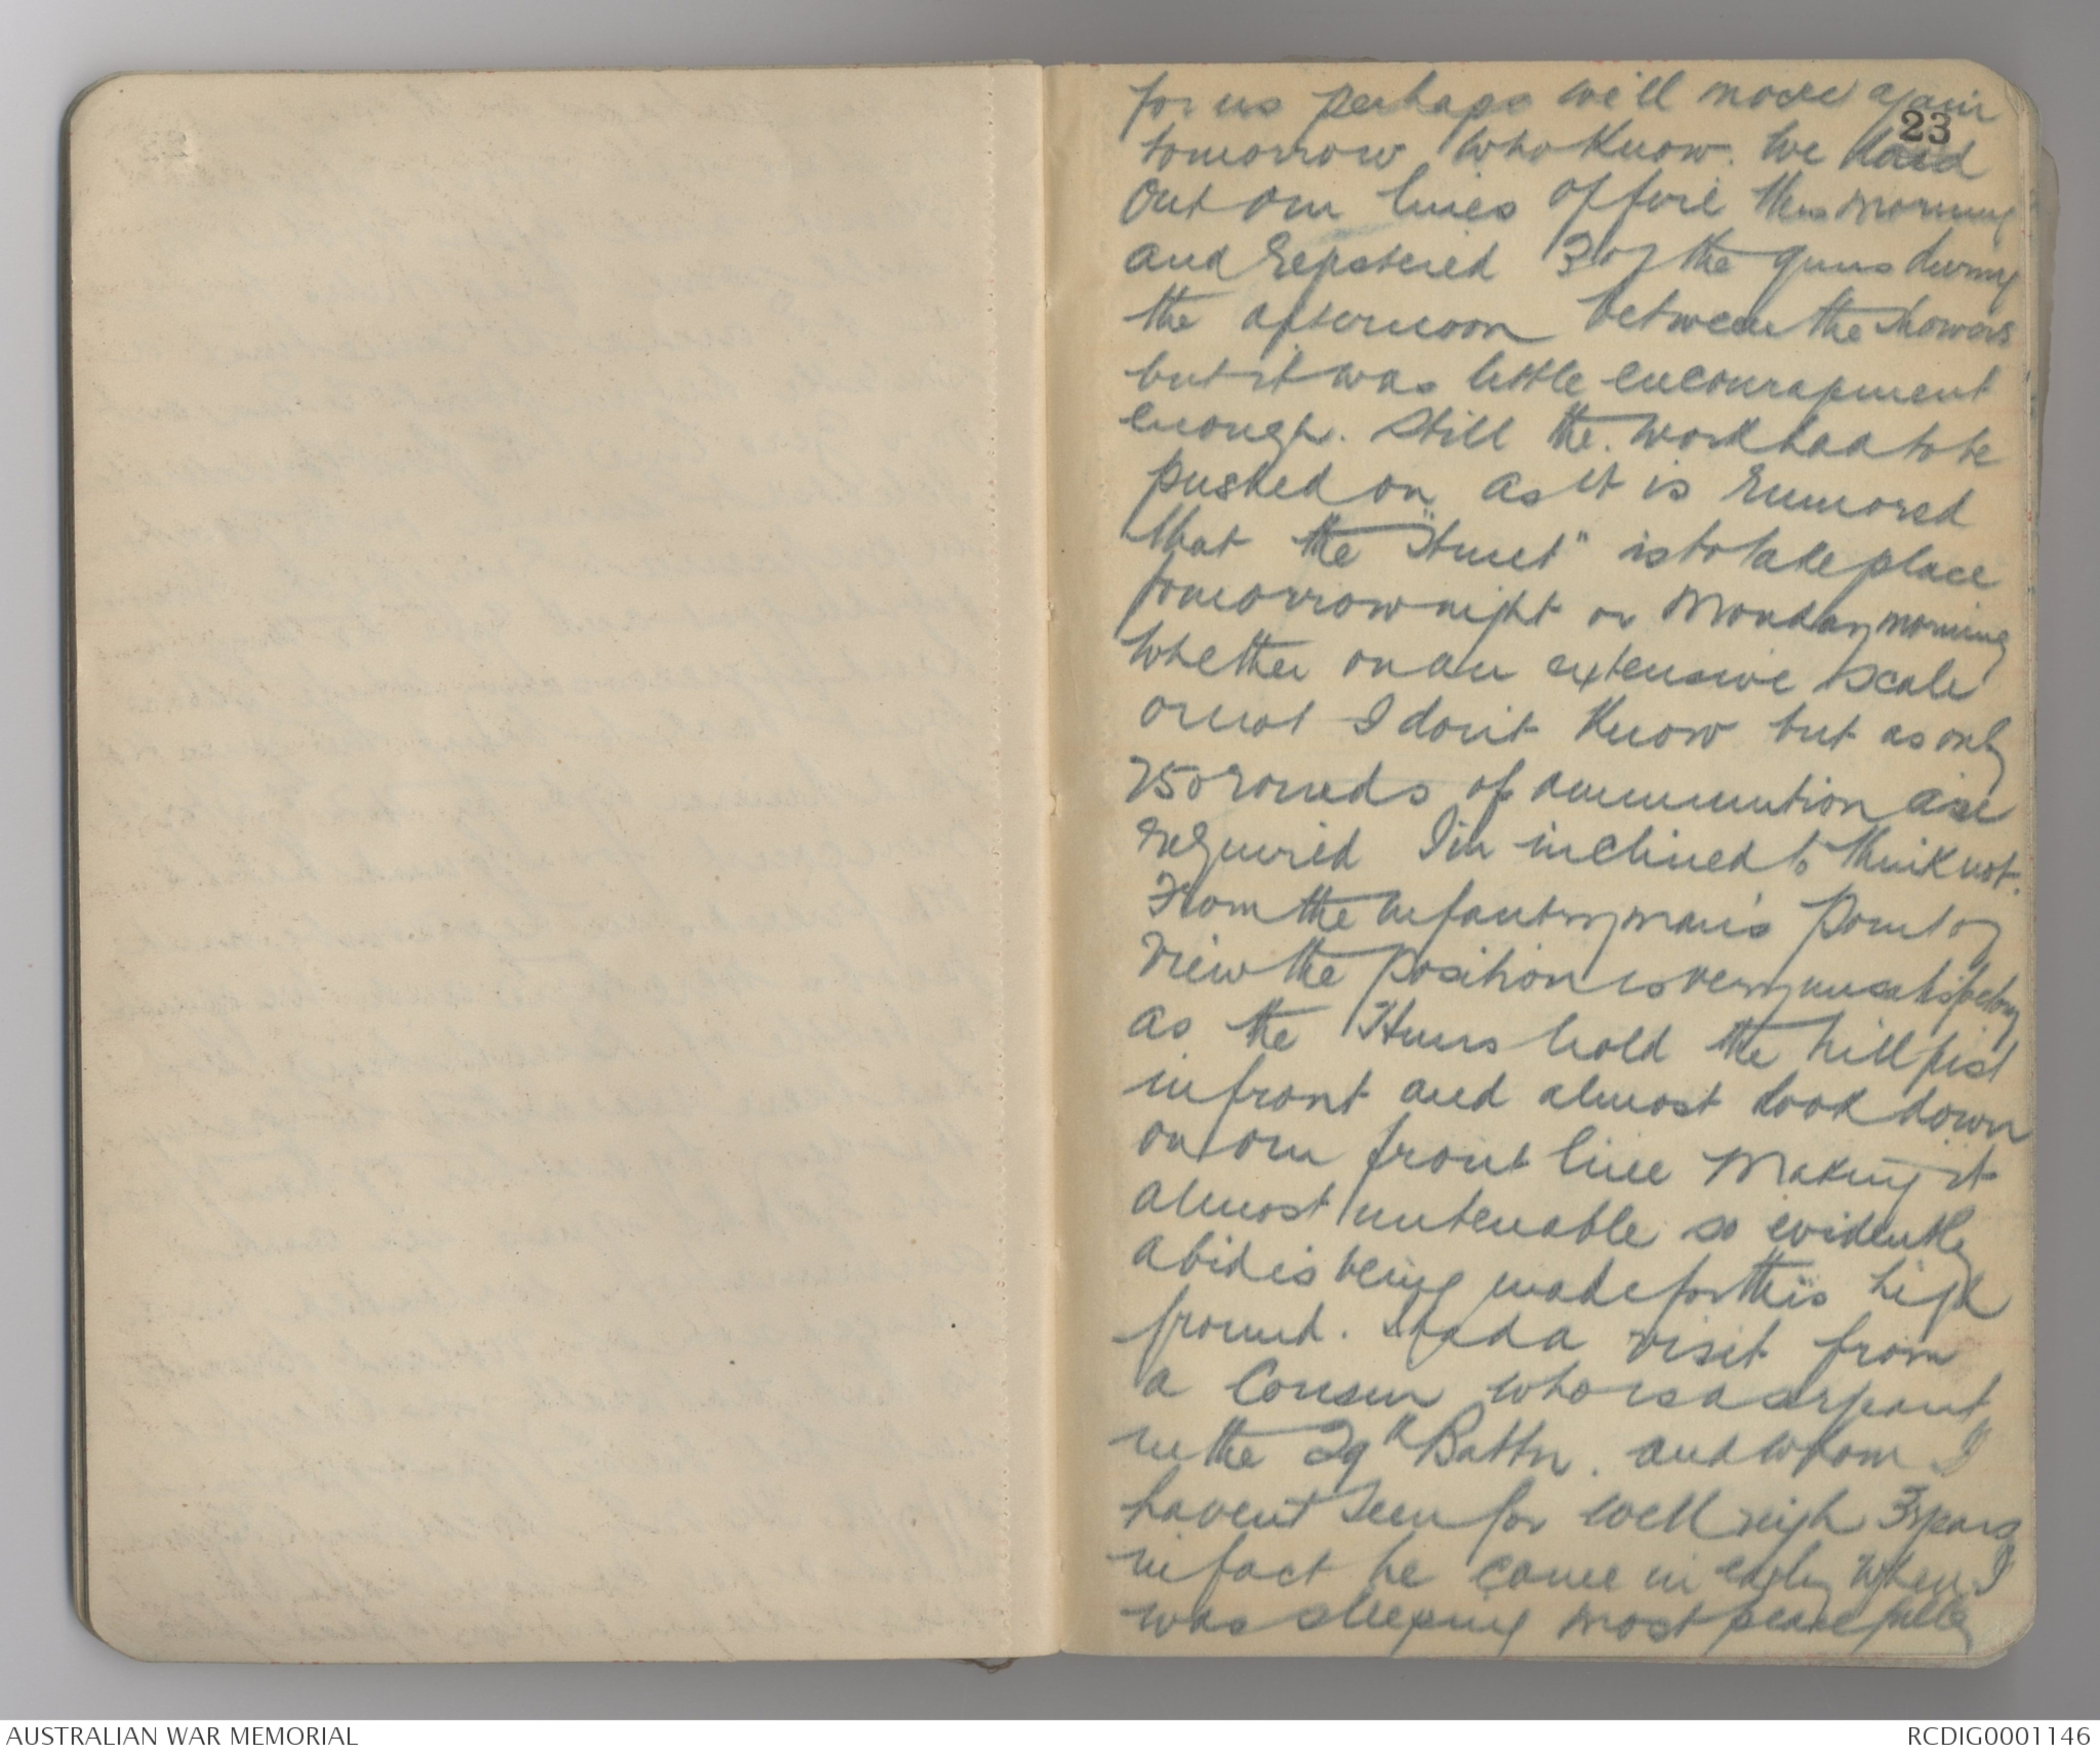 for us perhaps we'll move again
23
tomorrow who know. We laid
out our lines of fire this morning
and registered 3 of the guns during
the afternoon between the showers
but it was little encouragment
enough. Still the work had to be
pushed on as it is rumored
that the "Stunt" is to take place
tomorrow night or Monday morning
whether on an extensive scale
or not I don't know but as only
250 rounds of ammunition are
required I'm inclined to think not.
From the infantryman's point of
view the position is very unsatisfactory
as the Huns hold the hill just
in front and almost look down
on our front line making it
almost untenable so evidently
a bid is being made for this high
ground. Had a visit from
a Cousin who is a sergeant
in the 29th Battn. and whom I
havent seen for well nigh 3 years
in fact he came in early when I
was sleeping most peacefully
AUSTRALIAN WAR MEMORIAL
RCDIG0001146